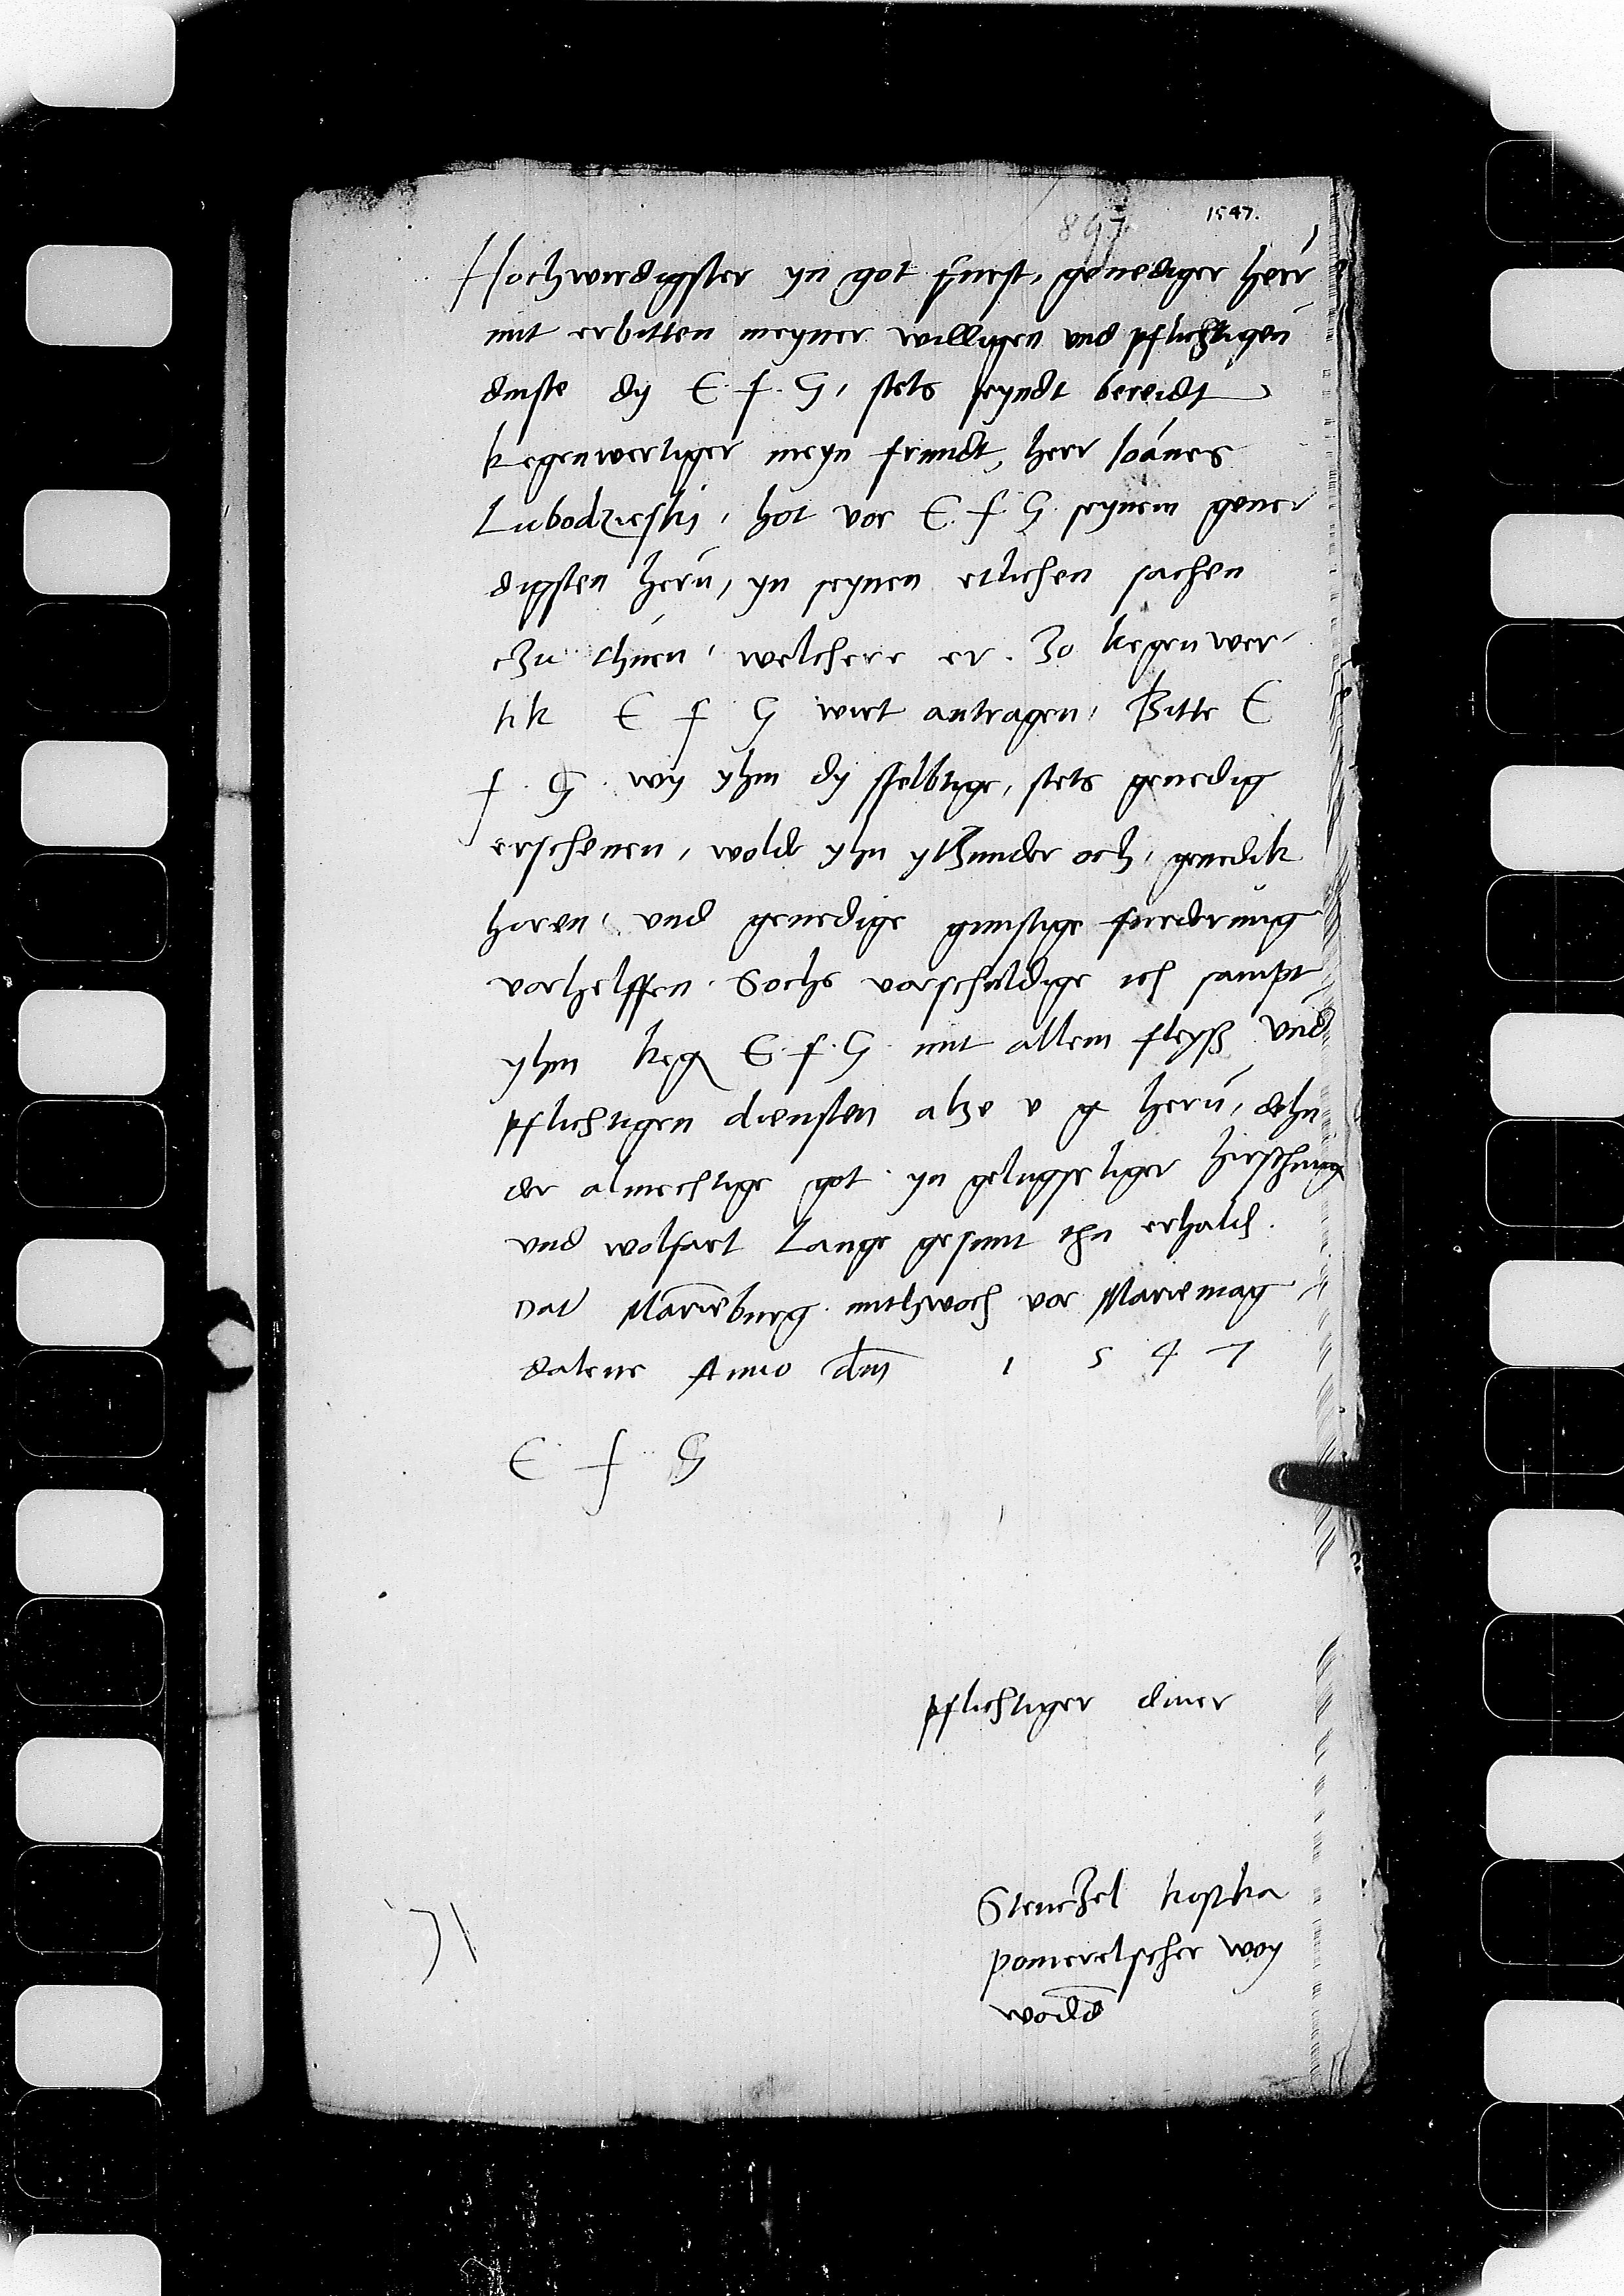 1547.
897
Hochwirdigster yn got furst, genediger herr
mit erbitten meyner willigen und pflichtigen
dinste dy E. f. G, stets seyndt bereidt
kegenwertiger meyn frundt, herr Ioanes
Lubodzieski, hot vor E. f. G. seynem gene
digsten hern, yn seynen etlichen sachen
czu thuen, welchere er. Zo kegenwer
tik E f G wirt antragen, Bitte E
f. G. wy yhm dy sselbtige, stets genedig
erschenen, wold yhn ytzunder och, genedik
horen, und genedige gunstige furderung
vorhelffen. Sochs vorschuldige ich sampt
yhm keg E. f. G. mit allem fleysz und
pflichtigen diensten alze v g hern, dehn
der almechtige got. yn gelugseliger
und wolfart Lange gesunt thu erhald.
Dat Marieburg mithwoch vor Marie mag
dalene Anno dm 1 5 4 7
E f G
pflichtiger diner
Stenczel kostka
pomerelscher woy
wode